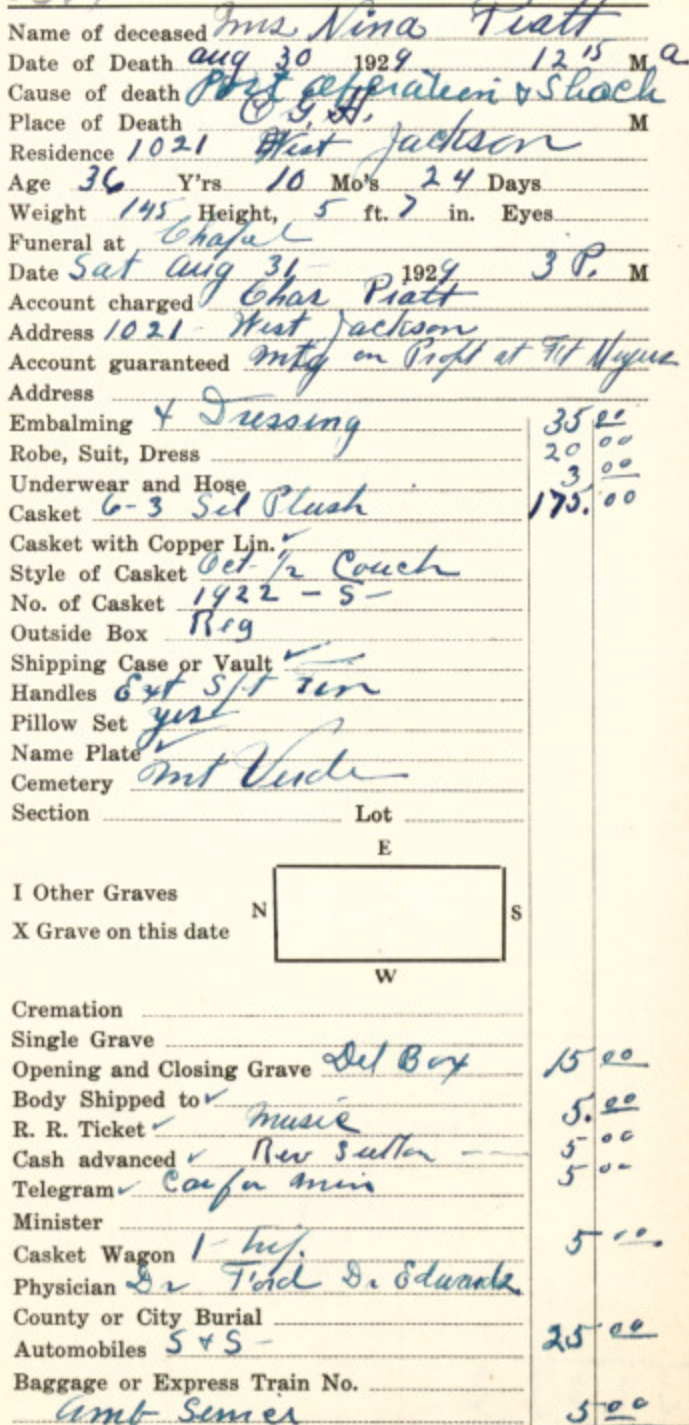 Name of deceased Mrs Nina Piatt
Date of Death Aug 30 1929 12 15 M a
Cause of death Post Operation & Shock
Place of Death C. G. H. M
Residence 1021 West Jackson
Age 36 Y'rs 10 Mo's 24 Days
Weight 145 Height, 5 ft. 7 in. Eyes
Funeral at Chapel
Date Sat Aug 31 - 1929 3 P. M
Account charged Chas Piatt
Address 1021 - West Jackson
Account guaranteed Mtg on at Ft
Address
Embalming & Dressing 35 00
Robe, Suit, Dress 20 00
Underwear and Hose 3 00
Casket 6-3 Sil Plush 175. 00
Casket with Copper Lin. ✓
Style of Casket Oct 1/2 Couch
No. of Casket 1922 - S -
Outside Box Reg
Shipping Case or Vault ✓
Handles Ext
Pillow Set yes
Name Plate ✓
Cemetery Mt Verde
Section Lot
E
I Other Graves
N S
X Grave on this date
W
Cremation
Single Grave
Opening and Closing Grave Del Box 15 00
Body Shipped to ✓
R. R. Ticket ✓ Music 5. 00
Cash advanced ✓ Rev Sutton - 5 00
Telegram ✓ Car for Min 5 00
Minister
Casket Wagon 1 - 5 00
Physician Dr Ford Dr Edwards
County or City Burial
Automobiles S & S - 25 00
Baggage or Express Train No.
Amb Service 5 00